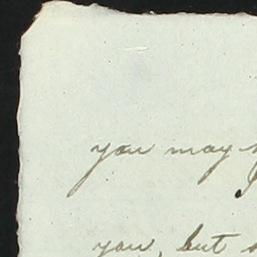 you may
you, but